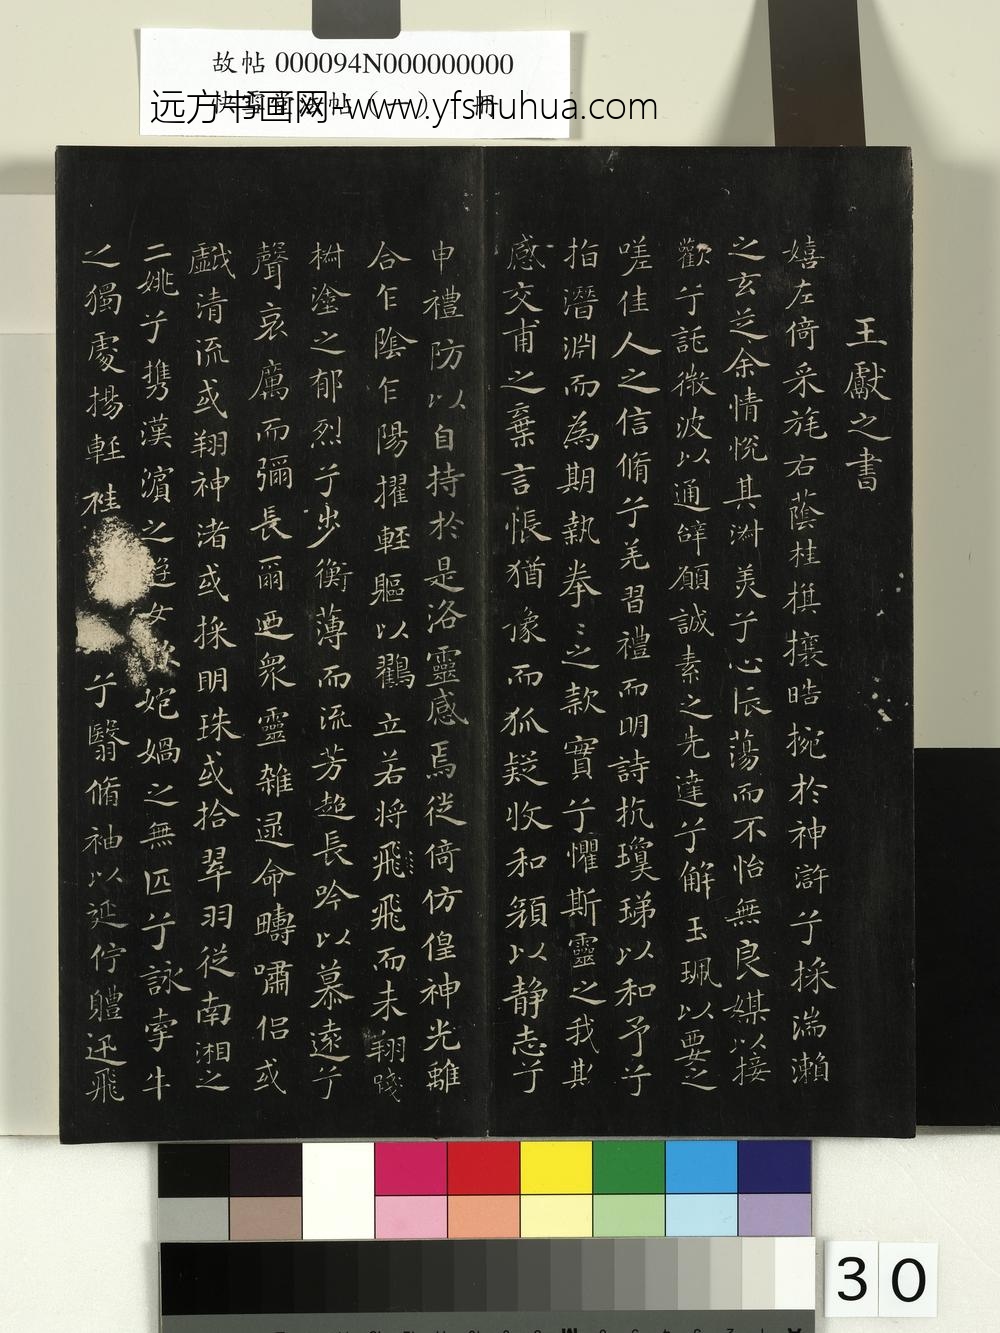 故帖 000094N000000000
快雪堂法帖（一） 冊
远方书画网-www.yfshuhua.com
王獻之書
嬉左倚采旄右蔭桂棋攘皓捥於神滸兮採湍瀨
之玄芝余情悅其淑美兮心振蕩而不怡無良媒以接
歡兮託微波以通辭願誠素之先達兮解玉珮以要之
嗟佳人之信脩兮羌習禮而明詩抗瓊珶以和予兮
指潛淵而為期執拳〻之款實兮懼斯靈之我欺
感交甫之棄言悵猶豫而狐疑收和顏以靜志兮
申禮防以自持於是洛靈感焉徙倚仿偟神光離
合乍陰乍陽擢輕軀以鸛立若將飛飛而未翔踐
椒塗之郁烈兮步衡薄而流芳超長吟以慕遠兮
聲哀厲而彌長爾迺眾靈雜遝命疇嘯侶或
戲清流或翔神渚或採明珠或拾翠羽從南湘之
二姚兮攜漢濱之遊女歎妑媧之無匹兮詠牽牛
之獨處揚輕袿兮翳脩袖以延佇軆迅飛
30